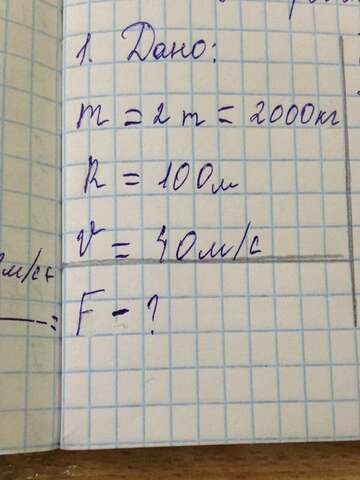 1. Дано:
m = 2 т = 2000кг
R = 100м
V = 40м/с
м/с
F - ?